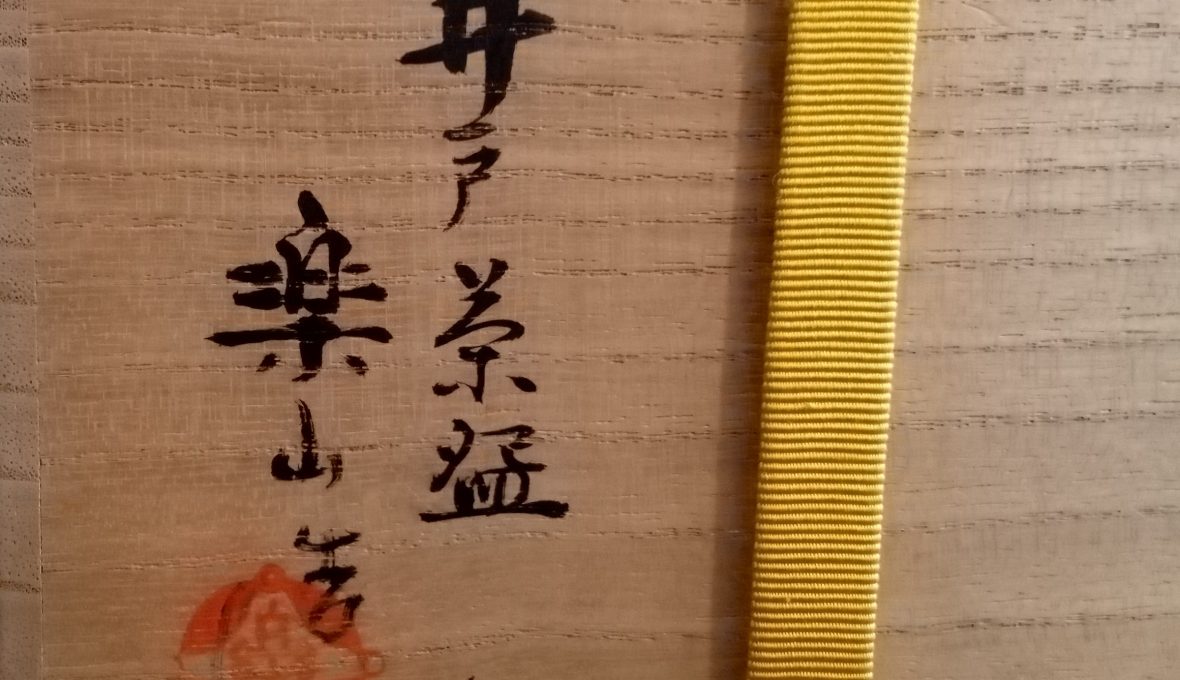 井戸茶盌
楽山